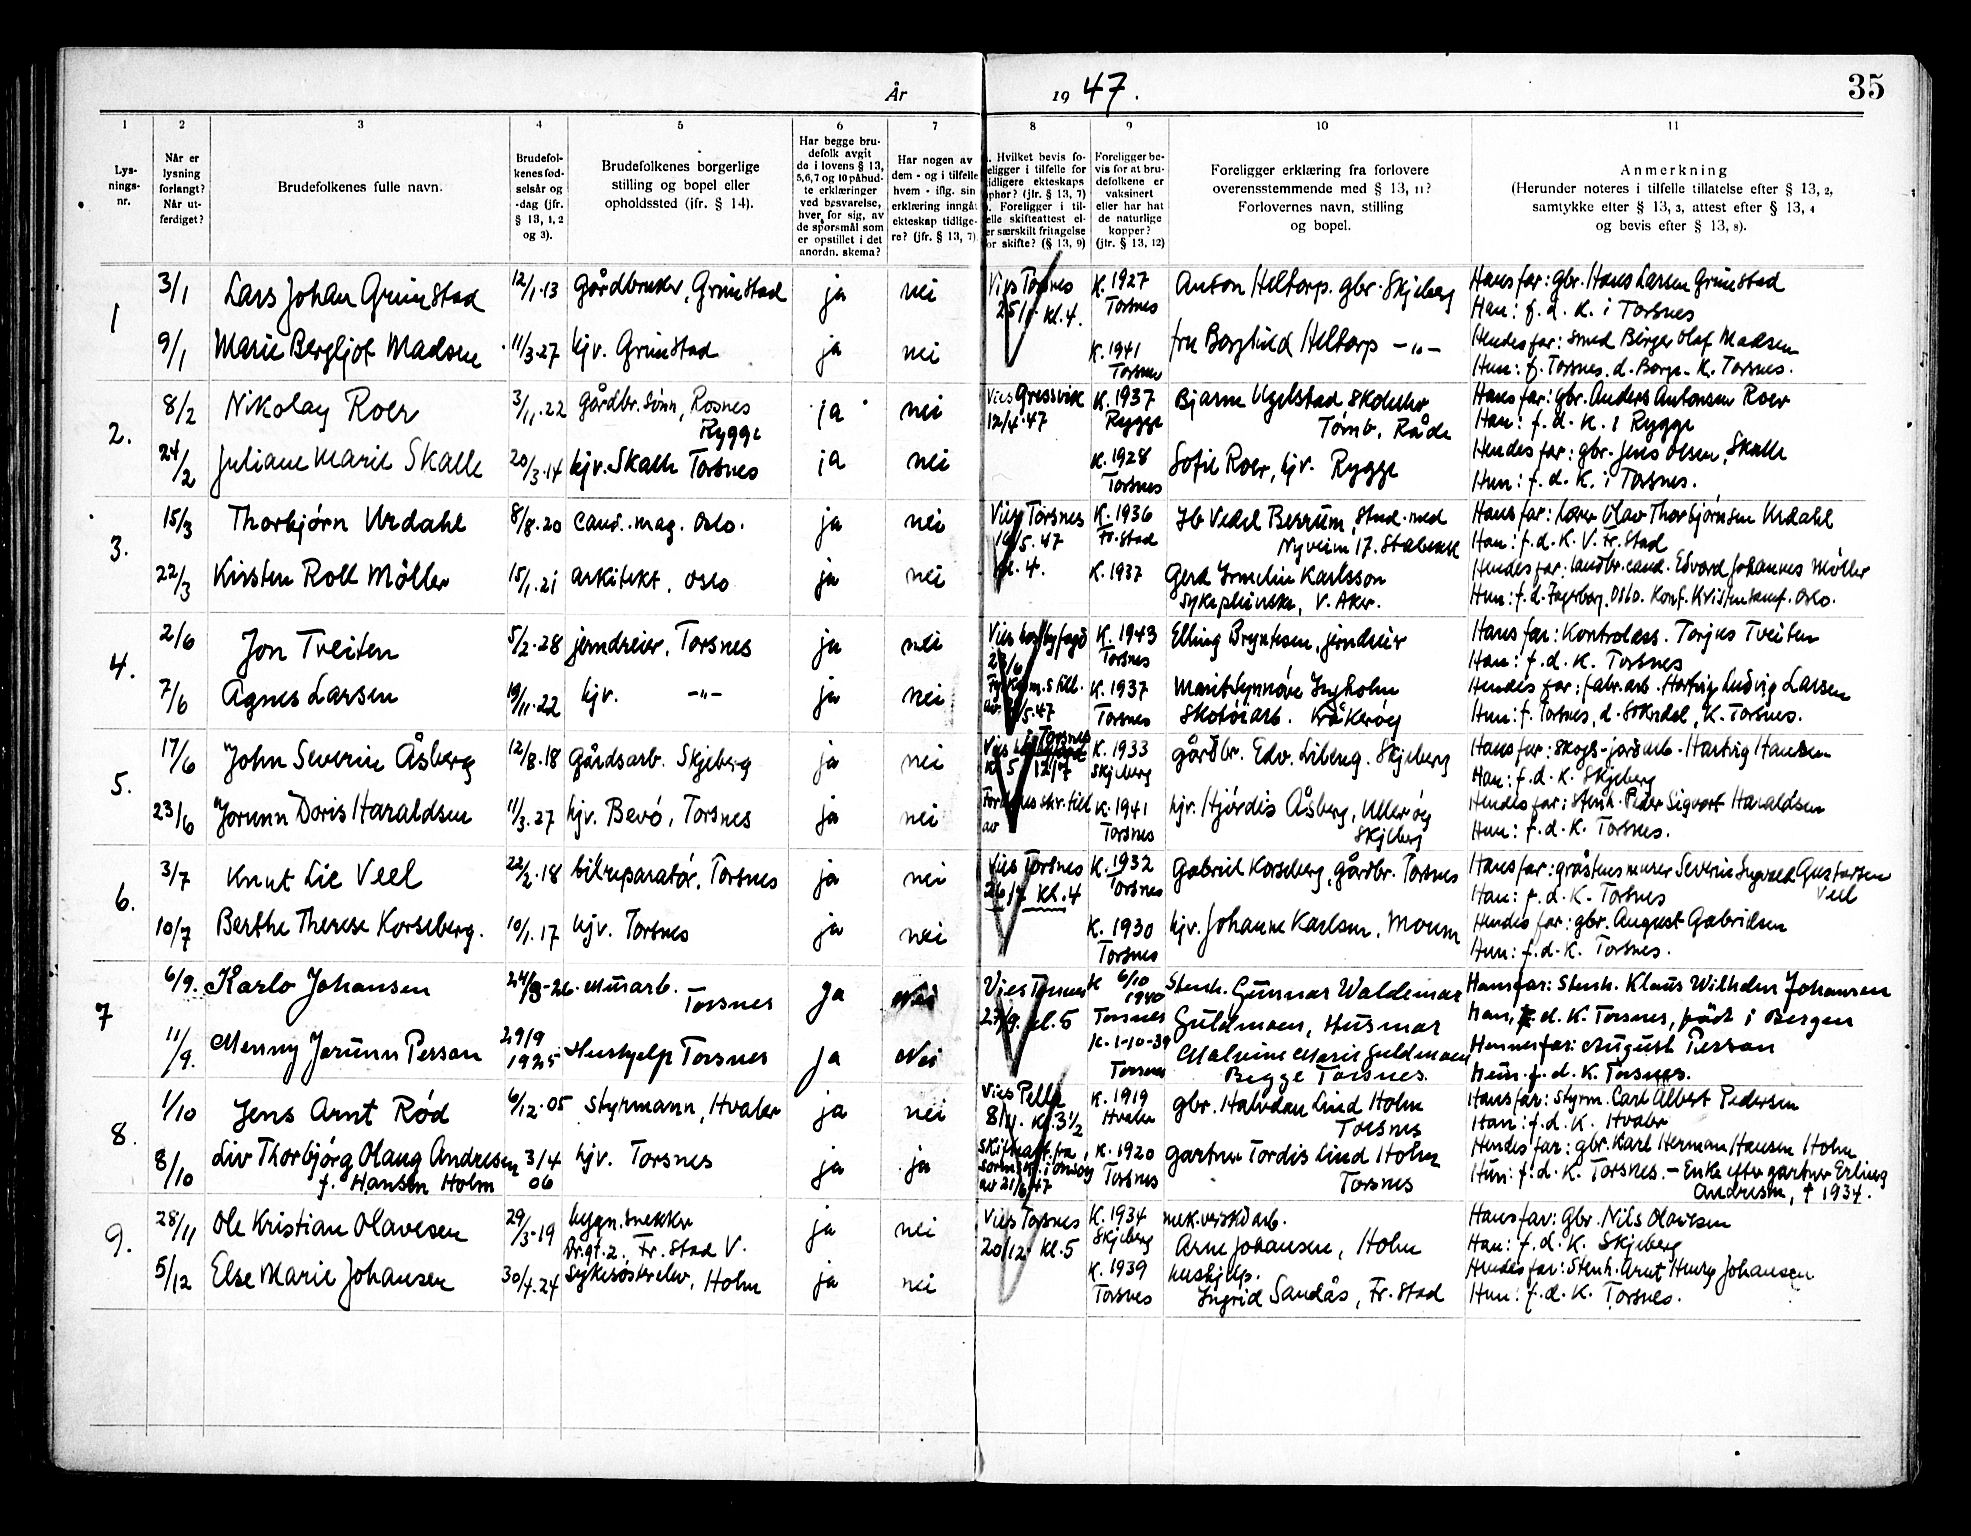 År 1947.
35
1 2 3 4 5 6 7 8 9 10 11
Lys-
nings-
nr.
Når er
lysning
forlangt?
Når ut-
ferdiget?
Brudefolkenes fulle navn.
Brudefol-
kenes fød-
selsår og
-dag (jfr.
§ 13, 1, 2
og 3).
Brudefolkenes borgerlige
stilling og bopel eller
opholdssted (jfr. § 14).
Har begge bru-
defolk avgit
de i lovens § 13,
5,6,7 og 10 påbud-
te erklæringer
ved besvarelse,
hver for sig, av
de spørsmål som
er opstillet i det
anordn. skema?
Har nogen av
dem - og i tilfelle
hvem - iflg. sin
erklæring inngåt
ekteskap tidlige-
re? (jfr. § 13, 7)
Hvilket bevis fo-
religger i tilfelle for
tidligere ekteskaps
ophør? (jfr. § 13, 7)
Foreligger i til-
felle skifteattest el-
ler særskilt fritagelse
for skifte? (§ 13, 9)
Foreligger be-
vis for at bru-
defolkene er
vaksinert
eller har hat
de naturlige
kopper?
(jfr. § 13, 12)
Foreligger erklæring fra forlovere
overensstemmende med § 13, 11?
Forlovernes navn, stilling
og bopel.
Anmerkning
(Herunder noteres i tilfelle tillatelse efter § 13, 2,
samtykke efter § 13, 3, attest efter § 13, 4
og bevis efter § 13, 8).
1
3/1 Lars Johan Grimstad 12/1.13 gårdbruker, Grimstad ja nei
Vies Torsnes
25/1 kl. 4.
K. 1927
Torsnes
Anton Heltorp. gbr. Skjeberg
Hans far: gbr. Hans Larsen Grimstad
Han: f. d. K. i Torsnes
9/1 Marie Bergljot Madsen 11/3.27 hjv. Grimstad ja nei
K. 1941
Torsnes
fru Borghild Heltorp -"-
Hendes far: smed Birger Olaf Madsen
Hun: f. Torsnes. d. Borge. K. Torsnes.
2.
8/2 Nikolay Roer 3/11.22 gårdbr. sønn, Rosnes
Rygge
ja nei
Vies Gressvik
12/4.47
K. 1937
Rygge
Bjarne Ugelstad
Tomb, Råde
Hans far: gbr. Anders Antonsen Roer
Han: f. d. K. i Rygge
24/2 Juliane Marie Skalle 20/3.14 hjv. Skalle Torsnes ja nei
K. 1928
Torsnes
Sofie Roer, hjv. Rygge
Hendes far: gbr. Jens Olsen, Skalle
Hun: f. d. K. i Torsnes.
3.
15/3 Thorbjørn Urdahl 8/8.20 cand. mag. Oslo. ja nei
Vies Torsnes
/5.47
kl. 4.
K. 1936
Fr.stad
Ib Vedel Berrum, stud. med
Nyveien 17. Stabekk
Hans far: Lærer Olav Thorbjørnsen Urdahl
Han: f. d. K. V. Fr.stad
22/3 Kirsten Roll Möller 15/1.21 arkitekt, Oslo ja nei
K. 1937
Gerd Irmelin Karlsson
Sykepleierske, V. Aker.
Hendes far: landbr. cand. Edvard Johannes Möller
Hun: f. d. Fagerborg, Oslo. Konf. Kristensamf. Oslo.
4.
2/6 Jon Tveiten 5/2.28 jerndreier, Torsnes ja nei
Vies byfogd
K. 1943
Torsnes
Elling Bryntesen, jerndreier
Hans far: Kontrolass. Torjus Tveiten
Han: f. d. K. Torsnes
7/6 Agnes Larsen 19/11.22 hjv. -"- ja nei
/5.47
K. 1937
Torsnes
Marit Synnöve Ingholm
Skotöiarb. Kråkeröy
Hendes far: fabr.arb. Hartvig Ludvig Larsen
Hun: f. Torsnes, d. K. Torsnes.
5.
17/6 John Severin Åsberg 12/8.18 gårdsarb. Skjeberg ja nei
Vies i Torsnes
kl 5 12/7
K. 1933
Skjeberg
gårdbr. Edv. Libeng. Skjeberg
Hans far: skogs-jordarb. Hartvig Hansen
Han: f. d. K. Skjeberg
23/6 "Jorunn" Doris Haraldsen 11/3.27 hjv. Bevö, Torsnes ja nei
skr. till
av
K. 1941
Torsnes
hjv. Hjördis Åsberg, Ulleröy
Skjeberg
Hendes far: Stenh. Peder Sigvart Haraldsen
Hun: f. d. K. Torsnes.
6.
3/7 Knut Lie Veel 22/2.18 bilreparatør, Torsnes ja nei
Vies Torsnes
26/7 kl. 4
K. 1932
Torsnes
Gabriel Korseberg, gårdbr. Torsnes
Hans far: gråstensmurer Severin Ingvald Gustavsen
Veel
Han: f. d. K. Torsnes
10/7 Berthe Therese Korseberg. 10/1.17 hjv. Torsnes ja nei
K. 1930
Torsnes
hjv. Johanne Karlsen, Moum
Hendes far: gbr. August Gabrielsen
Hun: f. d. K. Torsnes.
7
6/9. Karlo Johansen 24/8-26. Murarb.
Torsnes
ja Nei
Vies Torsnes
27/9. kl. 5
K 6/10
1940
Torsnes
Stenh. Gunnar Waldemar
Guldmoen, Husmor
Hans far: Stenh. Klaus Wilhelm Johansen
Han, f. d. K. Torsnes, født i Bergen
11/9. Menny Jorunn Person 29/9
1925
Hushjelp Torsnes ja Nei
K. 1-10-39
Torsnes
Malvine Marie Guldmoen
Begge Torsnes.
Hennes far: August Person
Hun. f. d. K. Torsnes.
8.
1/10 Jens Arnt Rød 6/12.05 Styrmann, Hvaler ja nei
Vies Pella
8/11. Kl. 3½
K. 1919
Hvaler
gbr. Halvdan Lind Holm
Torsnes
Hans far: Styrm. Carl Albert Pedersen
Han: f. d. K. Hvaler
8/10 Liv Thorbjørg Olaug Andresen
f. Hansen Holm
3/4
06
hjv. Torsnes ja ja
Skifteatt. fra
av 21/6 47
K. 1920
Torsnes
gartner Tordis Lind Holm
Torsnes
Hendes far: gbr. Karl Herman Hansen Holm
Hun: f. d. K. Torsnes. - Enke efter gartner Erling
Andresen, † 1934.
9.
28/11 Ole Kristian Olavesen 29/3.19 bygn. snekker
Br.gt. 2. Fr.stad V.
ja nei
Vies Torsnes
20/12 kl. 5
K. 1934
Skjeberg
mek. verkst.arb.
Arne Johansen, Holm
Hans far: Gbr. Nils Olavesen
Han: f. d. K. Skjeberg
5/12 Else Marie Johansen 30/4.24 Sykesøsterelev, Holm ja nei
K. 1939
Torsnes
hushjelp.
Ingrid Sandås, Fr.stad
Hendes far: Stenh. Arnt Henry Johansen
Hun: f. d. K. Torsnes.